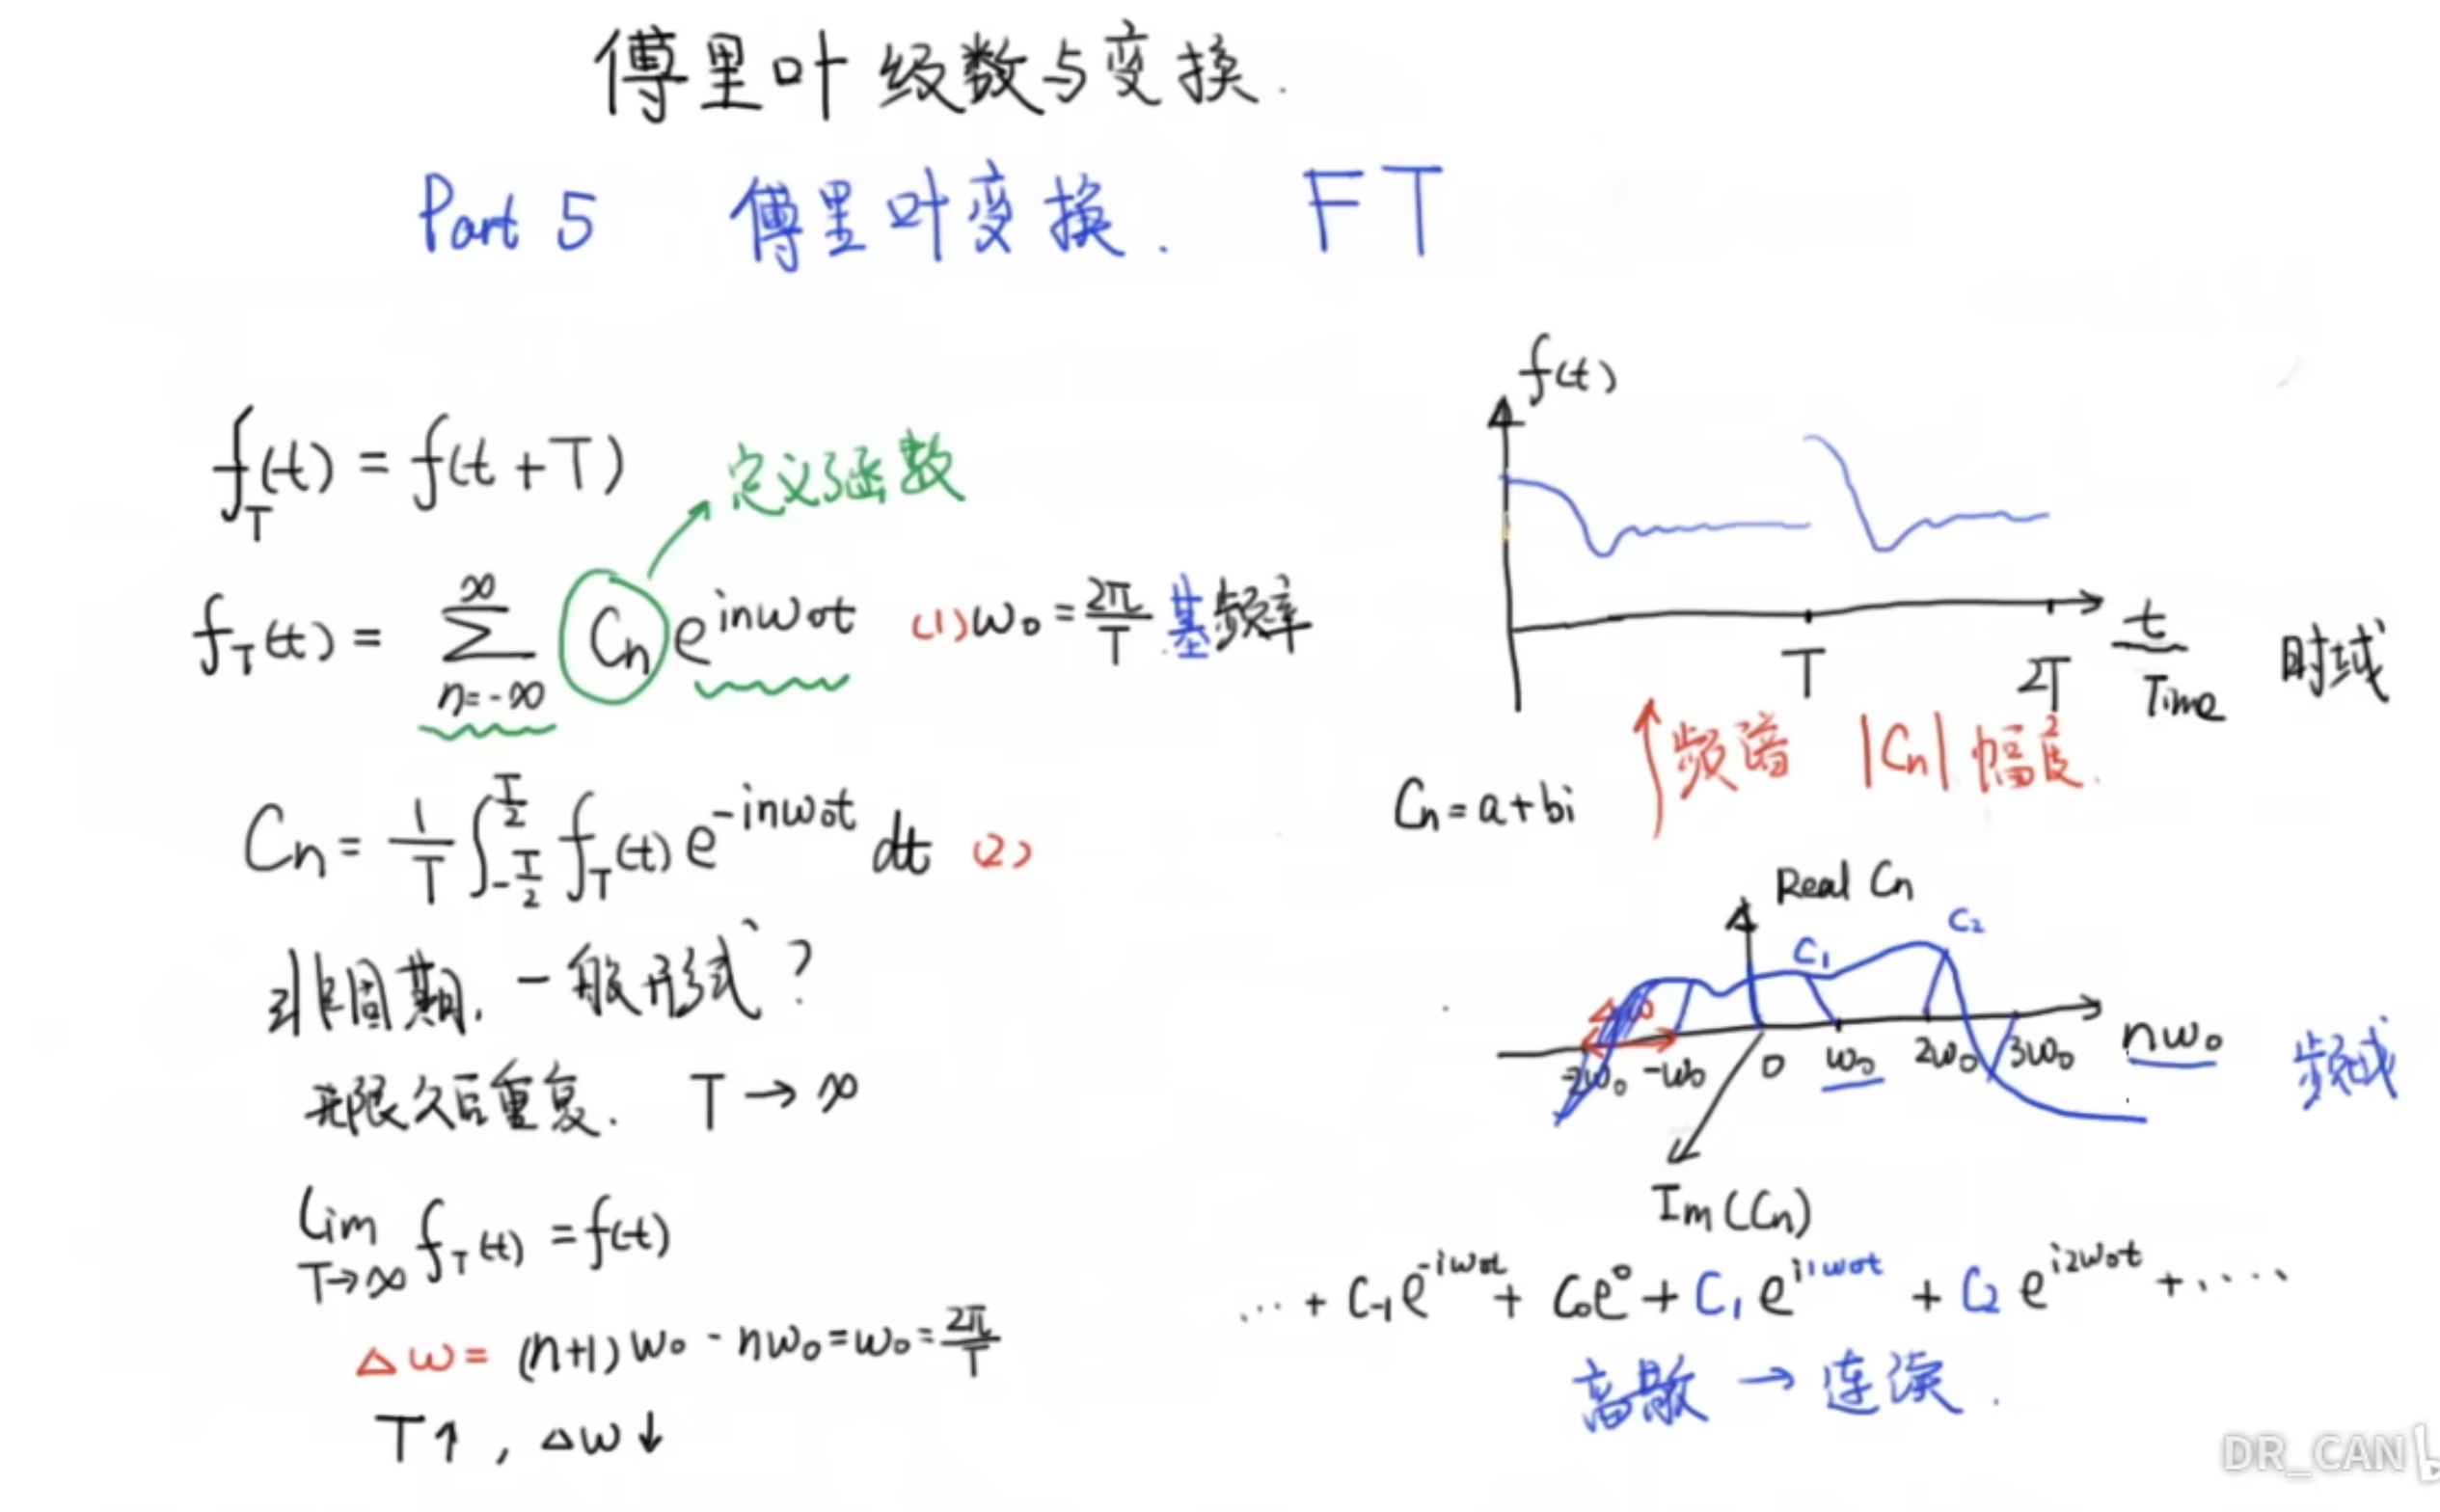 傅里叶级数与变换.
Part 5 傅里叶变换. FT
f_T(t) = f(t+T)
定义了函数
f_T(t) = ∑_{n=-∞}^{∞} C_n e^{inω₀t} (1) ω₀ = 2π/T 基频率
C_n = 1/T ∫_{-T/2}^{T/2} f_T(t) e^{-inω₀t} dt (2)
非周期, 一般形式?
无限久后重复. T → ∞
Lim_{T→∞} f_T(t) = f(t)
Δω = (n+1)ω₀ - nω₀ = ω₀ = 2π/T
T↑, Δω↓
f(t)
T 2T t
Time
时域
频谱 |C_n| 幅度.
C_n = a+bi
Real C_n
C₁ C₂
Δω
-2ω₀ -ω₀ 0 ω₀ 2ω₀ 3ω₀ nω₀
频域
Im(C_n)
... + C₋₁e^{-iω₀t} + C₀e^0 + C₁ e^{i1ω₀t} + C₂ e^{i2ω₀t} + ....
离散 → 连续.
DR_CAN